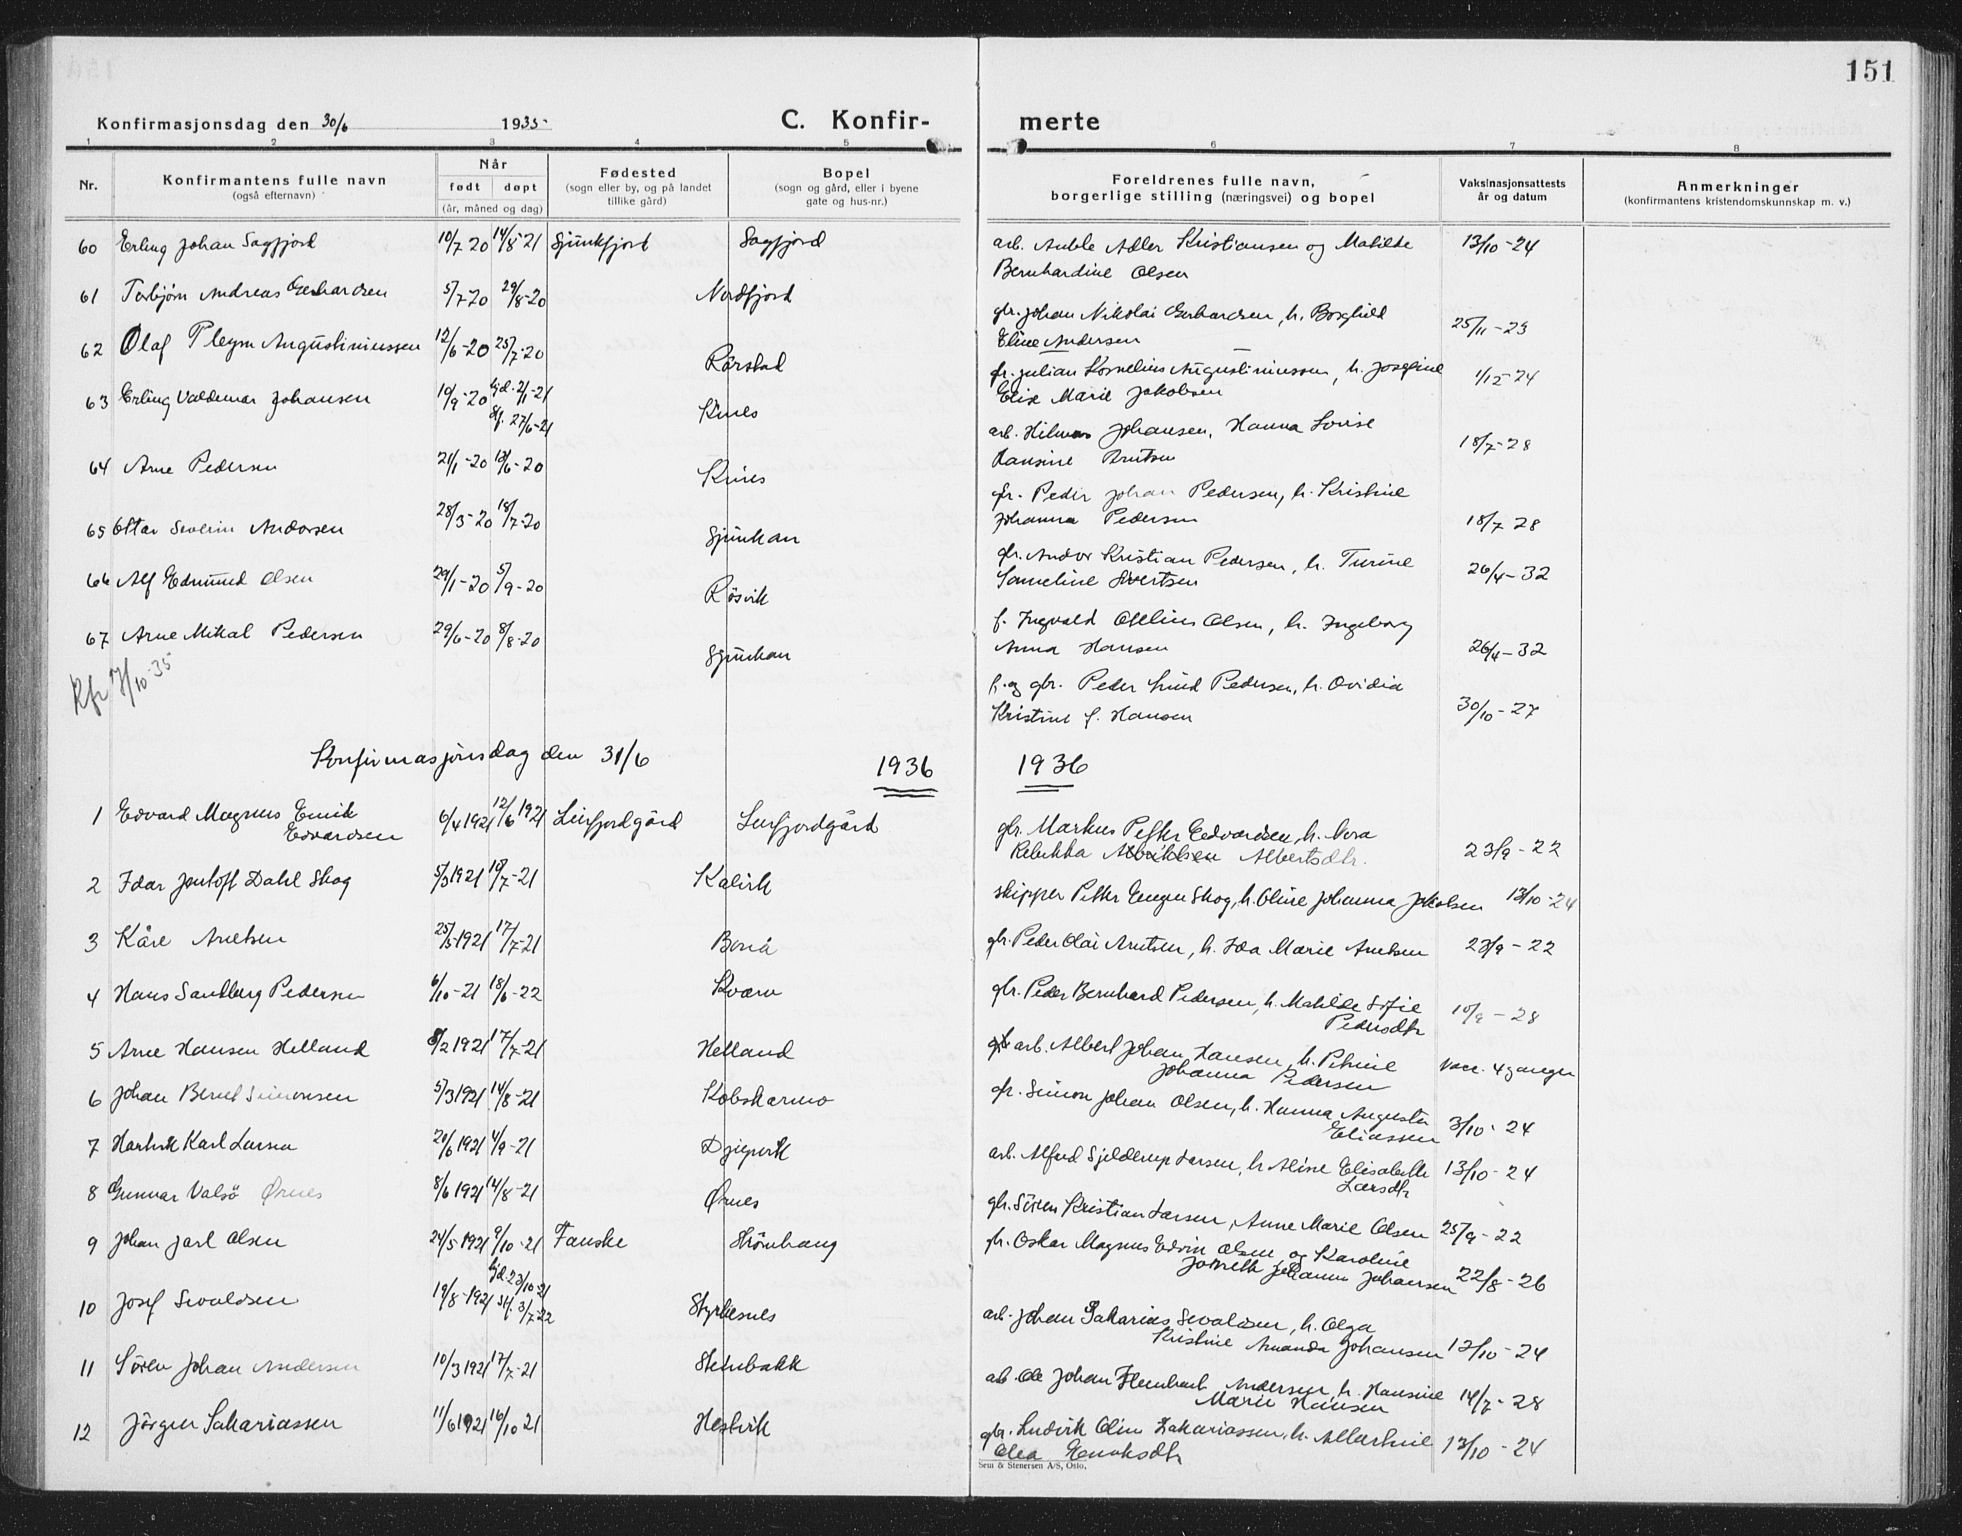 151
Konfirmasjonsdag den 30/6 1935
C. Konfir-
merte
1 2 3 4 5 6 7 8
Nr.
Konfirmantens fulle navn
(også efternavn)
Når
født døpt
(år, måned og dag)
Fødested
(sogn eller by, og på landet
tillike gård)
Bopel
(sogn og gård, eller i byene
gate og hus-nr.)
Foreldrenes fulle navn,
borgerlige stilling (næringsvei) og bopel
Vaksinasjonsattests
år og datum
Anmerkninger
(konfirmantens kristendomskunnskap m. v.)
60 Erling Johan Sagfjord 10/7 20 14/8-21 Sjunkfjord Sagfjord arb. Adler Kristiansen og Matilde 13/10-24
Bernhardine Olsen
61 Torbjørn Andreas Gerhardsen 5/7-20 29/8-20 Nordfjord
gbr. Johan Nikolai Gerhardsen, h. Borghild 25/11-23
Eline Andersen
62 Olaf Pleym Augustiniussen 12/6-20 25/7-20 Rørstad
gbr. Julian Kornelius Augustiniussen, h. Josefine 1/12-24
Elise Marie Jakobsen
63 Erling Valdemar Johansen 10/9-20 hjd. 2/1-21 Kines
st. 27/6-21
arb. Hilmar Johansen, Hanna Lovise 18/7-28
Hansine Arntsen
64 Arne Pedersen 21/1-20 13/6-20 Kines
gbr. Peder Johan Pedersen, h. Kristine
Johanna Pedersen 18/7 28
65 Ottar Severin Andorsen 28/3-20 18/7-20 Sjunkan
gbr. Andor Kristian Pedersen, h. Turine 26/4-32
Sivertsen
66 Alf Edmund Olsen 29/1-20 5/9-20 Røsvik
f. Ingvald Olsen, h. Ingeborg
Anna Hansen 26/4-32
67 Arne Mikal Pedersen 29/6-20 8/8-20 Sjunkan
f. og gbr. Peder Lund Pedersen, h. Ovidia
Kristine f. Hansen 30/10-27
Rfr 17/10-35
Konfirmasjonsdag den 31/6 1936 1936
1 Edvard Magnus Emik 6/4 1921 12/6 1921 Leirfjordgård Leirfjordgård
Edvardsen
gbr. Markus Petter Edvardsen, h. Nora
Rebekka Albertsdtr. 23/9-22
2 Idar Jentoft Dahl Skog 5/3 1921 10/7-21 Kalvik skipper Petter Eugen Skog, h. Oline Johanna Jakobsen 13/10-24
3 Kåre Arntsen 25/5-1921 17/7-21 Bonå gbr. Peder Olai Arntsen, h. Ida Marie Arntsen 23/9-22
4 Hans Sandberg Pedersen 6/10-21 18/6-22 Kværv gbr. Peder Bernhard Pedersen, h. Matilde Sofie 10/9-28
Pedersdtr
5 Arne Hansen Helland 8/2 1921 17/7-21 Helland arb. Albert Johan Hansen, h. Petrine vacc. 4 ganger
Johanna Pedersen
6 Johan Bernt Simonsen 5/3 1921 14/8-21 Kobskarmo gbr. Simon Johan Olsen, h. Hanna Augusta 3/10-24
Eliassen
7 Hartvik Karl Larsen 20/6 1921 4/9-21 Djupvik arb. Alfred Sjelderup Larsen, h. Aline Elisabeth 13/10-24
Larsdtr
8 Gunnar Valsø Ørnes 8/6 1921 14/8-21 Ørnes gbr. Sören Kristian Larsen, Anne Marie Olsen 25/9-22
9 Johan Jarl Olsen 24/5-1921 9/10-21 Fauske Strömhaug gbr. Oskar Magnus Edvin Olsen og Karoline
Johanna Johansen 22/8-26
10 Josef Sevaldsen 19/8-1921 hjd. 23/10-21 Styrkesnes
st. 3/7-22
arb. Johan Sakarias Sevaldsen, h. Olga
Kristine Amanda Johansen 13/10-24
11 Sören Johan Andersen 10/3 1921 17/7-21 Stenbakk arb. Ole Johan Andersen, h. Hansine 14/7-28
Marie Hansen
12 Jörgen Sakariassen 11/6 1921 16/10 21 Hestvik gbr. Ludvik Olin Zakariassen, h. Albertine 13/10-24
Olea Enoksdtr
Sem & Stenersen A/S, Oslo.